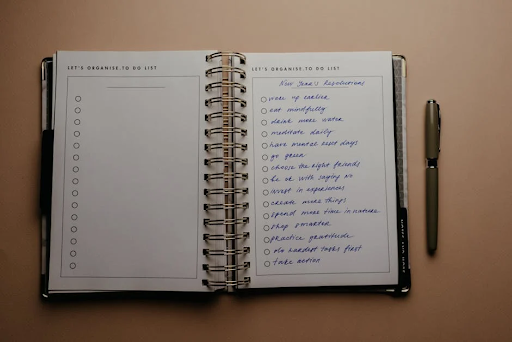 LET'S ORGANISE,TO DO LIST
LET'S ORGANISE,TO DO LIST
New Year's Resolutions
wake up earlier
eat mindfully
drink more water
meditate daily
have mental reset days
go green
choose the right friends
be ok with saying no
invest in experiences
create more things
spend more time in nature
shop smarter
practice gratitude
do hardest tasks first
take action